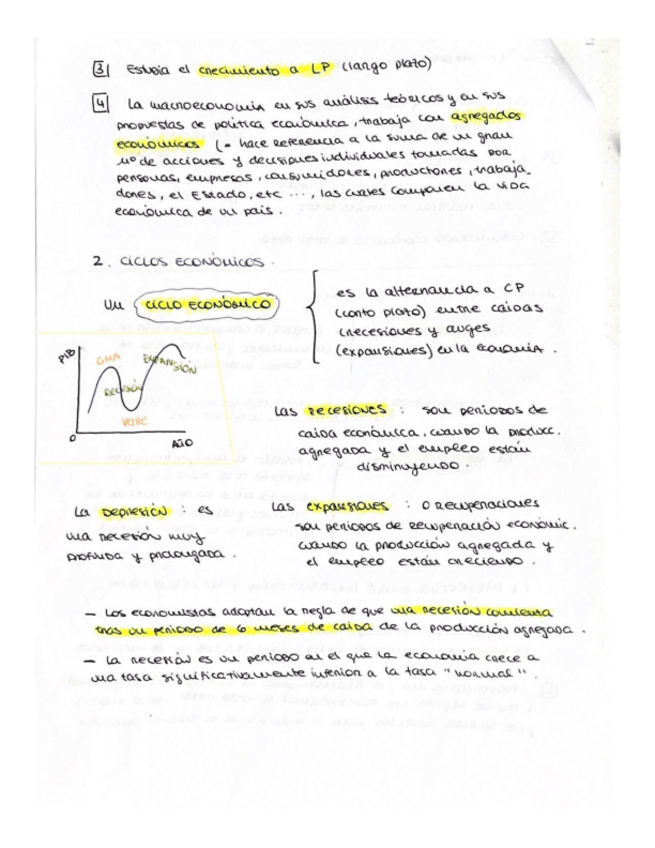 3| Estudia el crecimiento a LP (largo plazo)
4| La macroeconomía en sus análisis teóricos y en sus
propuestas de política económica, trabaja con agregados
económicos (= hace referencia a la suma de un gran
nº de acciones y decisiones individuales tomadas por
personas, empresas, consumidores, productores, trabaja-
dores, el Estado, etc ..., las cuales componen la vida
económica de un país.
2. CICLOS ECONÓMICOS.
Un CICLO ECONÓMICO
es la alternancia a CP
(corto plazo) entre caídas
(recesiones y auges
(expansiones) en la economía.
PIB
CIMA
EXPANSIÓN
RECESIÓN
Valle
0
AÑO
Las RECESIONES : son periodos de
caída económica, cuando la producc.
agregada y el empleo están
disminuyendo.
La DEPRESIÓN : es
una recesión muy
profunda y prolongada.
Las expansiones : o recuperaciones
son periodos de recuperación económic.
cuando la producción agregada y
el empleo están creciendo.
- Los economistas adoptan la regla de que una recesión comienza
tras un periodo de 6 meses de caída de la producción agregada.
- La recesión es un periodo en el que la economía crece a
una tasa significativamente inferior a la tasa "normal".